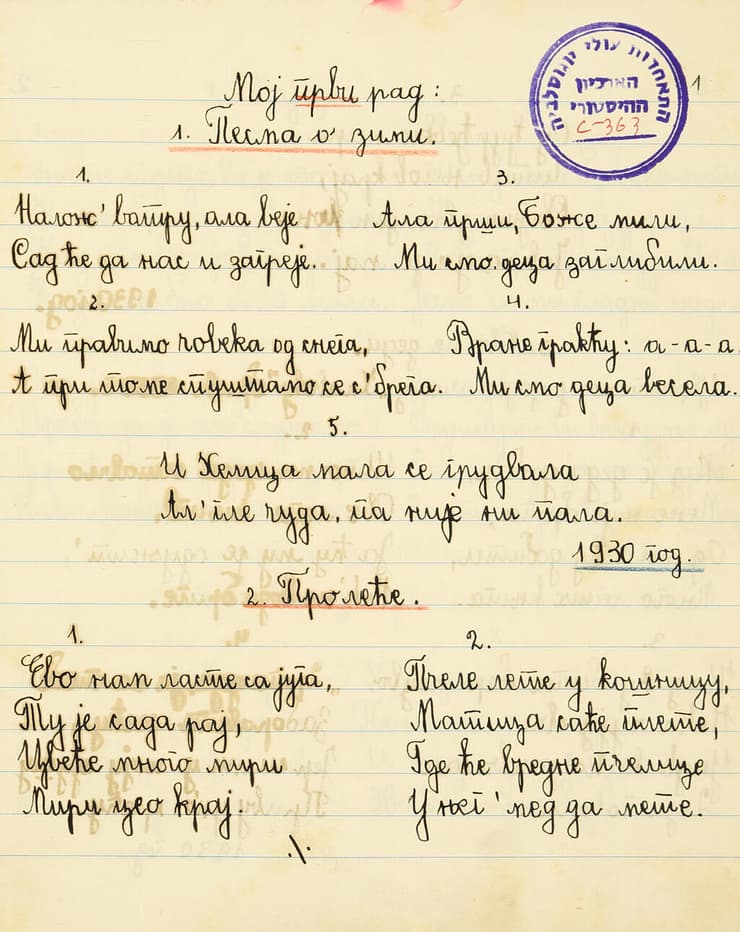 התאחדות עולי יוגוסלביה
הארכיון
ההיסטורי
C-363
1
Мој први рад:
1. Песма о' зими.
1.
Налож' ватру, ала веје
Сад ће да нас и загреје.
2.
Ми правимо човека од снега,
А при томе спуштамо се с' брега.
3.
Ала прши, Боже мили,
Ми смо деца заглибили.
4.
Вране гракћу: а-а-а
Ми смо деца весела.
5.
И Хемица мала се грудвала
Ал' гле чуда, па није ни пала.
1930 год.
2. Пролеће.
1.
Ево нам ласте са југа,
Ту је сада рај,
Цвеће много мири
Мири цео крај.
2.
Пчеле лете у кошницу,
Матица саће плете,
Где ће вредне пчелице
У њег' мед да мете.
./.